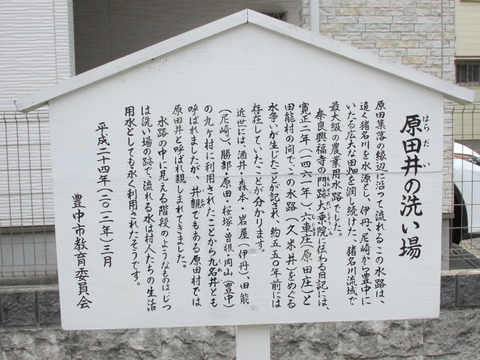 原田井の洗い場
はらだい
原田集落の縁辺に沿って流れるこの水路は、
遠く猪名川を水源とし、伊丹、尼崎から豊中に
いたる広大な田畑を潤し続けた、猪名川流域で
最大級の農業用水路でした。
奈良興福寺の門跡大乗院に伝わる日記には、
寛正二年(一四六一年)六車庄(原田庄)と
田能村の間で、この水路(久米井)をめぐる
水争いが生じたことが記され、約五五〇年前には
存在していたことが分かります。
近世には、酒井・森本・岩屋(伊丹)、田能
(尼崎)、勝部・原田・桜塚・曽根・岡山(豊中)
の九ヶ村に利用されたことから九名井とも
呼ばれましたが、井親でもある原田村では
原田井と呼ばれ親しまれてきました。
水路の中に見える階段のようなものは、じつ
は洗い場の跡で、流れる水は村人たちの生活
用水としても永く利用されたそうです。
平成二十四年(二〇一二年)三月
豊中市教育委員会